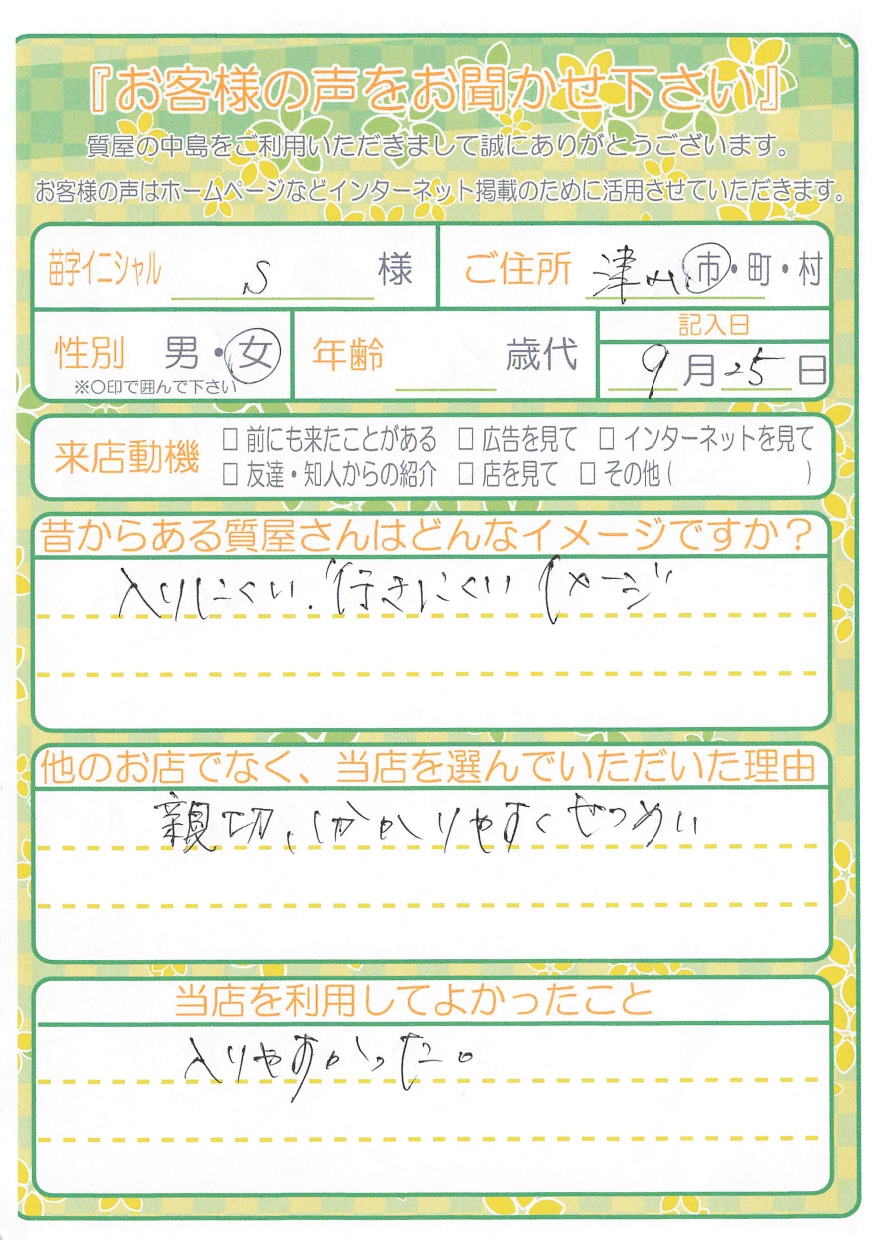 『お客様の声をお聞かせ下さい』
質屋の中島をご利用いただきまして誠にありがとうございます。
お客様の声はホームページなどインターネット掲載のために活用させていただきます。
苗字イニシャル S 様 ご住所 津山 市・町・村
性別 男・女 年齢 歳代 記入日
※〇印で囲んで下さい 9月25日
来店動機 □ 前にも来たことがある □ 広告を見て □ インターネットを見て
□ 友達・知人からの紹介 □ 店を見て □ その他( )
昔からある質屋さんはどんなイメージですか?
入りにくい、行きにくいイメージ
他のお店でなく、当店を選んでいただいた理由
親切、わかりやすくせつめい
当店を利用してよかったこと
入りやすかった。